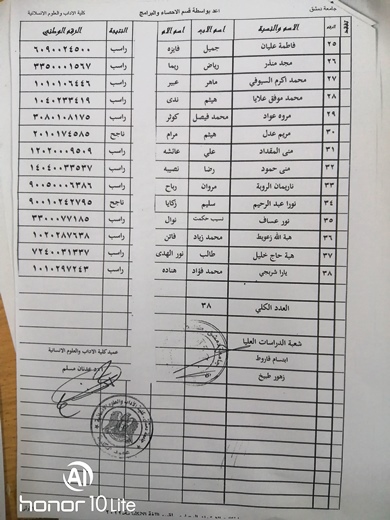 جامعة دمشق
اعد بواسطة قسم الاحصاء والبرامج
كلية الاداب والعلوم الانسانية
الاسم والنسبة اسم الاب اسم الام النتيجة الرقم الوطني
٢٥ فاطمة عليان جميل فايزه راسب ٦٠٩٠٠٢٤٥٠٠
٢٦ مجد منذر رياض ريما راسب ٣٣٥٠٠٠١٥٦٧
٢٧ محمد اكرم السيوفي ماهر عبير راسب ١٠١٠١٠٦٤٤٦
٢٨ محمد موفق علايا هيثم ندى راسب ١٠٤٠٢٣٣٤١٩
٢٩ مروه عواد محمد فيصل كوثر راسب ٣٠٨٠١٠٨١٧٥
٣٠ مريم عدل هيثم مرام ناجح ٢٠١٠١٧٤٥٨٥
٣١ منى المقداد علي عائشه راسب ١٢٠٢٠٠٠٩٥٠٩
٣٢ منى حمود رضا نصيبه راسب ١٤٠٤٠٠٣٣٥٣٧
٣٣ ناريمان الروية مروان رباح راسب ٩٠٠٥٠٠٠٦٣٨٦
٣٤ نورا عبد الرحيم سليم زكايا ناجح ٩٠٠١٠٢٤٢٧٩٥
٣٥ نور عساف نسيب حكمت نوال راسب ٣٣٠٠٠٧٧١٨٥
٣٦ هبة الله زعويط محمد زياد فاتن راسب ١٠٢٠٢٨٧٦٣٨
٣٧ هبة حاج خليل طالب نور الهدى راسب ٧٢٤٠٠٣١٣٣٧
٣٨ يارا شربجي محمد فؤاد هناده راسب ١٠١٠٢٩٧٢٤٣
العدد الكلي ٣٨
شعبة الدراسات العليا
عميد كلية الاداب والعلوم الانسانية
ابتسام فاروط
عدنان مسلم
زهور طبيخ
AI
honor 10 Lite